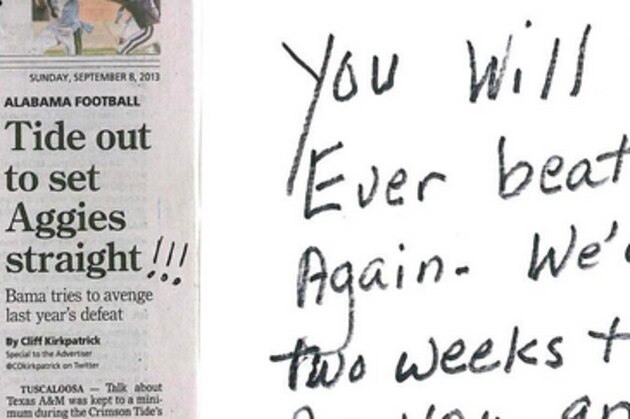 SUNDAY, SEPTEMBER 8, 2013
ALABAMA FOOTBALL
Tide out
to set
Aggies
straight!!!
Bama tries to avenge
last year's defeat
By Cliff Kirkpatrick
Special to the Advertiser
@COkirkpatrick on Twitter
TUSCALOOSA — Talk about
Texas A&M was kept to a mini-
mum during the Crimson Tide's
You Will
Ever beat
Again. We'
two weeks t